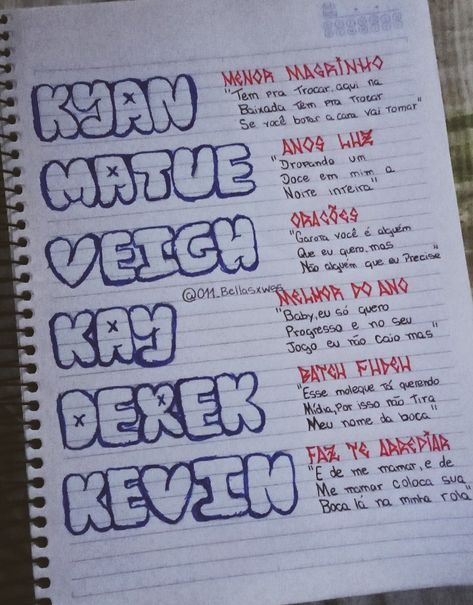 KYAN
MENOR MAGRINHO
"Tem pra Trocar, aqui na
Baixada Tem pra Trocar
Se você botar a cara vai Tomar"
MATUE
ANOS LUZ
"Dropando um
Doce em mim a
Noite inteira"
VEIGH
ORAÇÕES
"Garota você é alguém
Que eu quero, mas
Não alguém que eu Precise"
@011_Bellasxwes
KAY
MELHOR DO ANO
"Baby, eu só quero
Progresso e no seu
Jogo eu não caio mas"
DEREK
BATCH
"Esse moleque Tá querendo
Mídia, Por isso não Tira
Meu nome da boca"
KEVIN
FAZ TE ARREPIAR
"E de me mamar, e de
Me mamar coloca sua
Boca lá na minha rola"